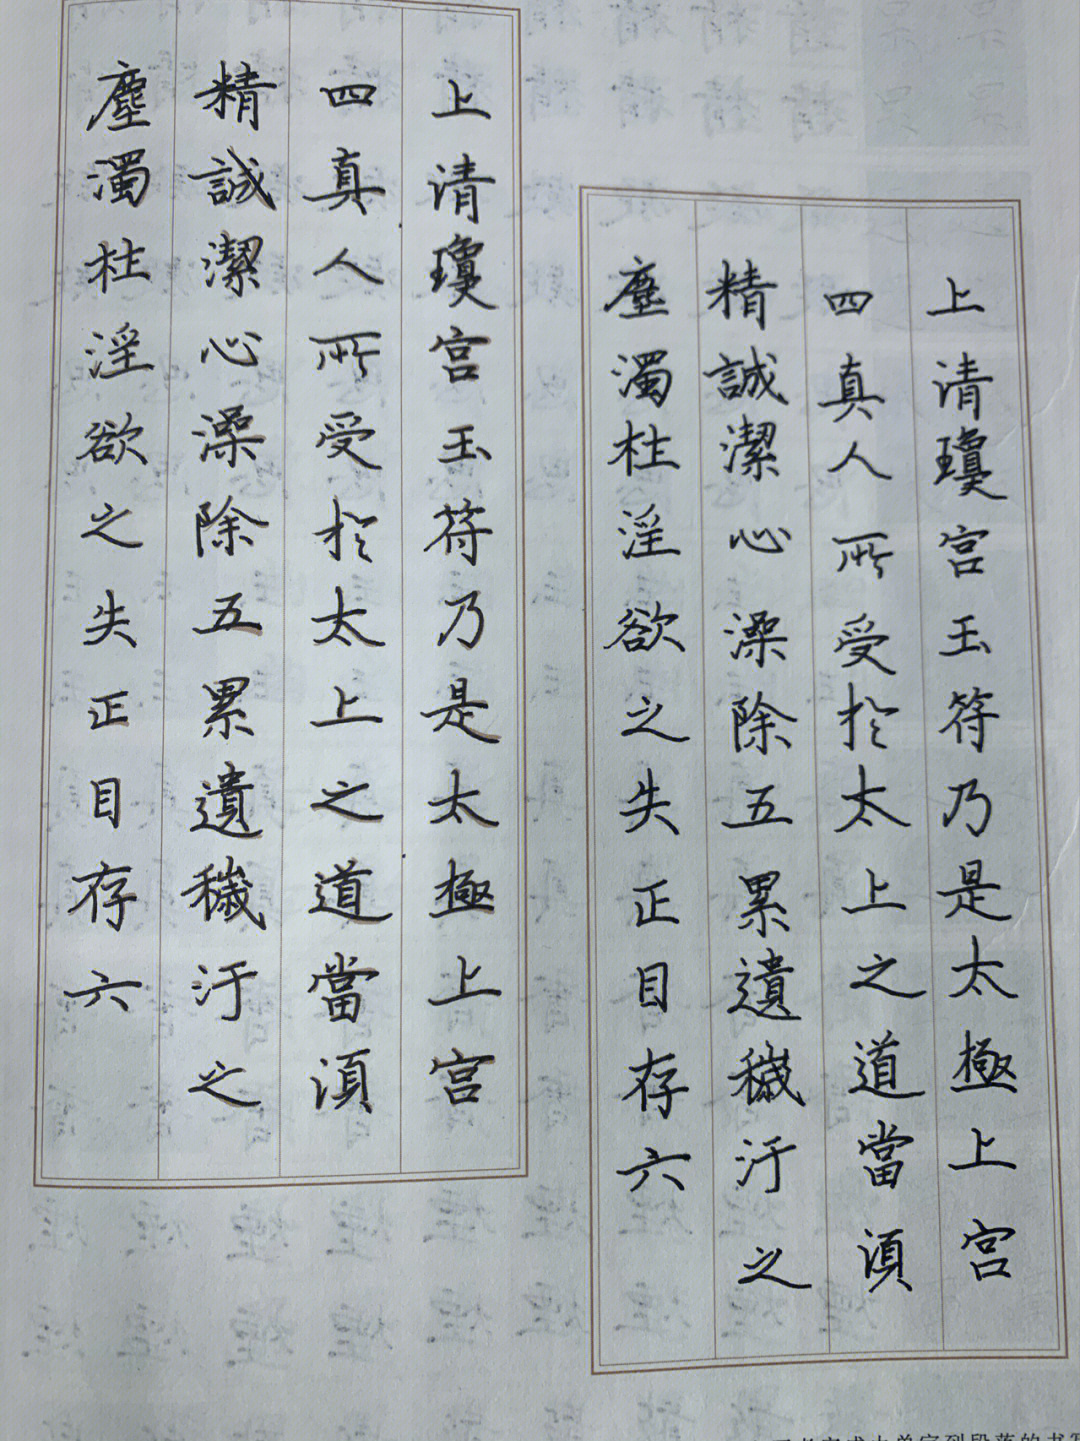 上清瓊宫玉符乃是太極上宫
四真人所受於太上之道當湏
精誠潔心澡除五累遺穢汙之
塵濁杜淫欲之失正目存六
上清瓊宫玉符乃是太極上宫
四真人所受於太上之道當湏
精誠潔心澡除五累遺穢汙之
塵濁杜淫欲之失正目存六